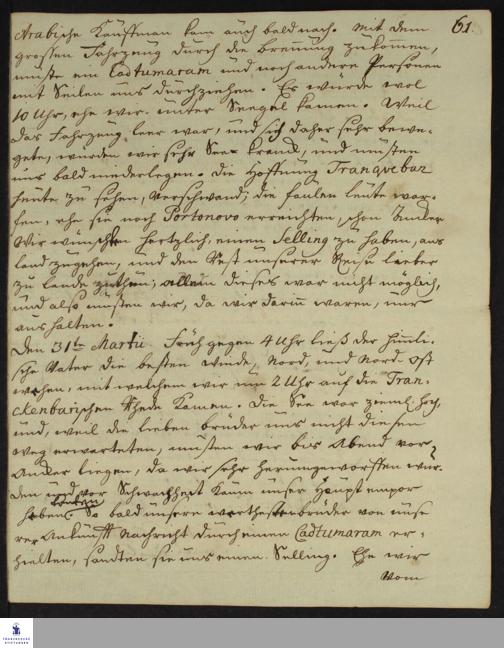 61.
Arabische Kauffman kam auch bald nach. Mit dem
grossen Fahrzeug durch die Brennung zu komen,
muste ein Cadtumaram und noch andere Personen
mit Seilen uns durchziehen. Es wurde wol
10 Uhr, ehe wir unter Seegel kamen. Weil
das Fahrzeug leer war, und sich daher sehr bewe-
gete, wurden wir sehr See-krank, und musten
uns bald niederlegen. Die Hoffnung Tranquebar
heute zu sehen, verschwand; die faulen leute war-
fen, ehe sie noch Portonovo erreichten, schon Ancker
Wir wünschten hertzlich, einen Selling zu haben, ans
land zugehen, und den Rest unserer Reise lieber
zu Lande zuthun; allein dieses war nicht möglich,
und also musten wir, da wir darin waren, nur
aushalten.
Den 31ten Martii. Früh gegen 4 Uhr ließ der himli-
sche Vater die besten winde, Nord, und Nord Ost
wehen, mit welchem wir um 2 Uhr auf die Tran-
ckenbarischen Rhede kamen. Die See war zieml. hoch,
und, weil die lieben brüder uns nicht diesen
weg erwarteten, musten wir bis Abend vor
Ancker liegen, da wir sehr herumgeworffen wur-
den und vor Schwachheit kaum unser Haupt empor
heben konten. So bald unsere werthesten brüder von unse
rer Ankunft Nachricht durch einen Cadtumaram er-
hielten, sandten sie uns einen Selling. Ehe wir
vom
FRANCKESCHE
STIFTUNGEN